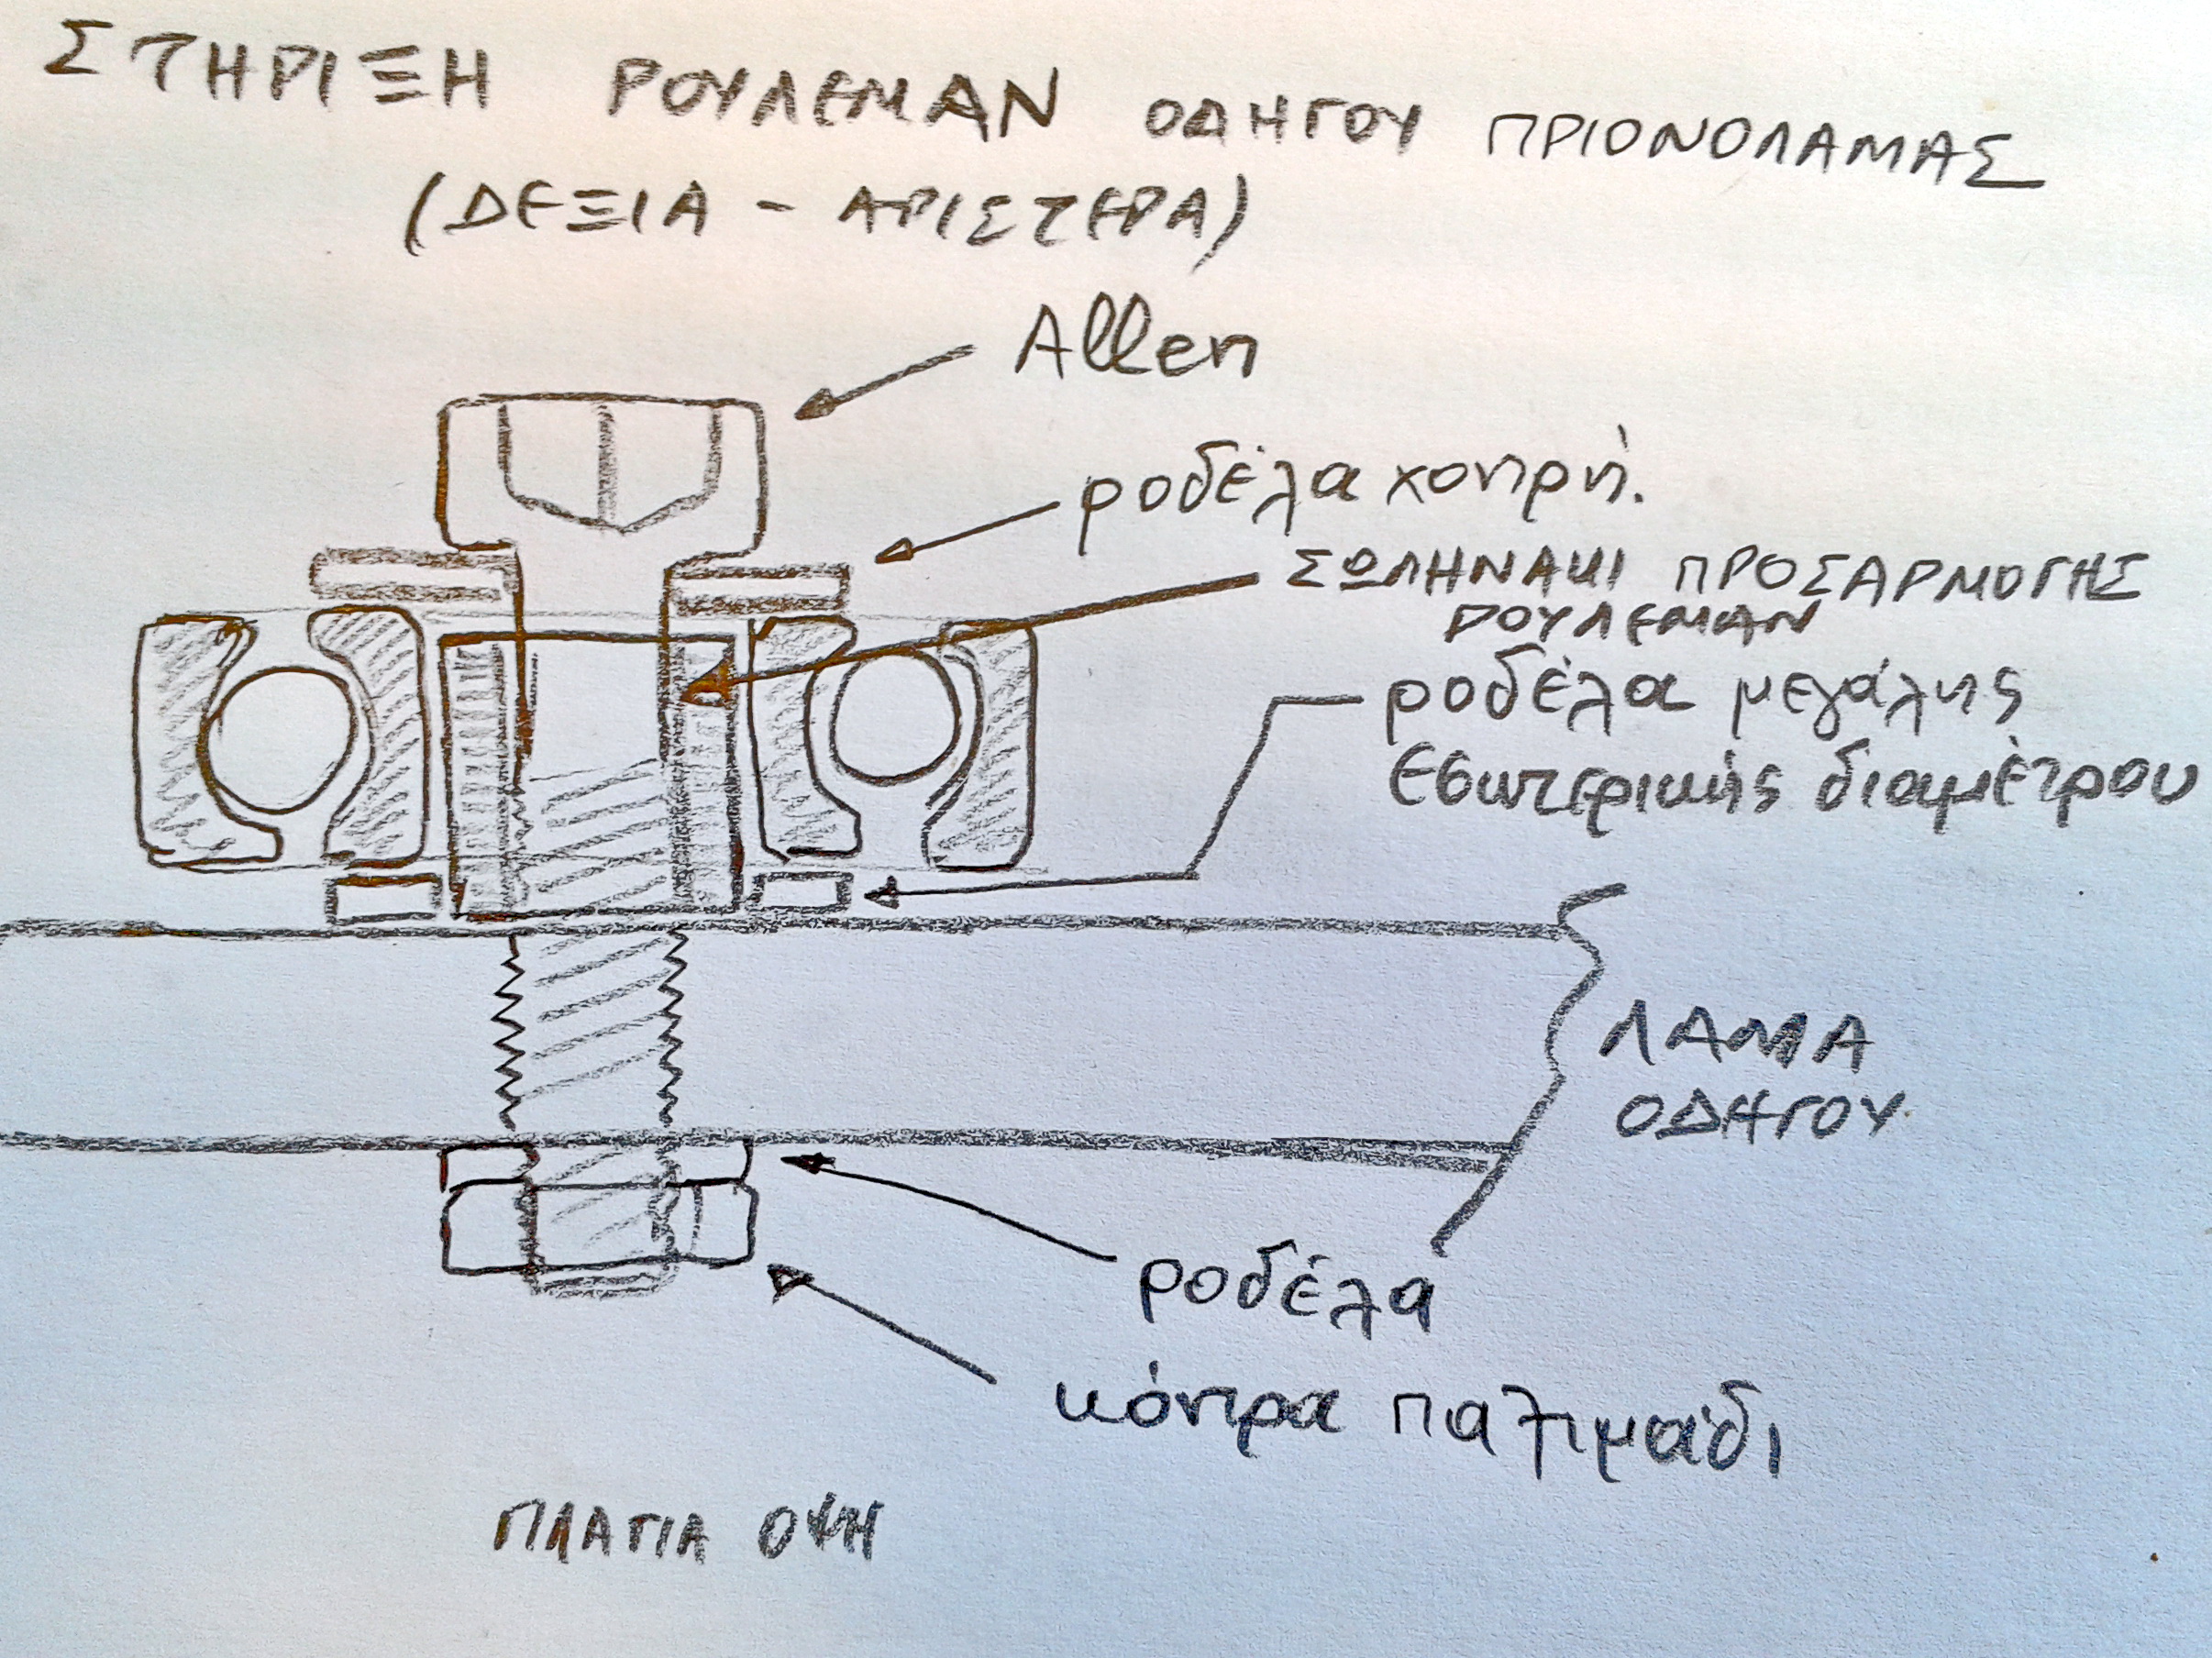 ΣΤΗΡΙΞΗ ΡΟΥΛΕΜΑΝ ΟΔΗΓΟΥ ΠΡΙΟΝΟΛΑΜΑΣ
(ΔΕΞΙΑ - ΑΡΙΣΤΕΡΑ)
Allen
ροδέλα χοντρή.
ΣΩΛΗΝΑΚΙ ΠΡΟΣΑΡΜΟΓΗΣ
ΡΟΥΛΕΜΑΝ
ροδέλα μεγάλης
εσωτερικής διαμέτρου
ΛΑΜΑ
ΟΔΗΓΟΥ
ροδέλα
κόντρα παξιμάδι
ΠΛΑΓΙΑ ΟΨΗ